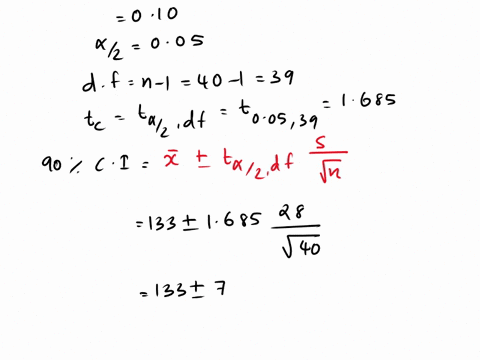 = 0.10
α/2 = 0.05
d.f = n-1 = 40-1 = 39
tc = tα/2,df = t0.05,39 = 1.685
90 % C.I = x̄ ± tα/2,df s/√n
= 133 ± 1.685 28/√40
= 133 ± 7